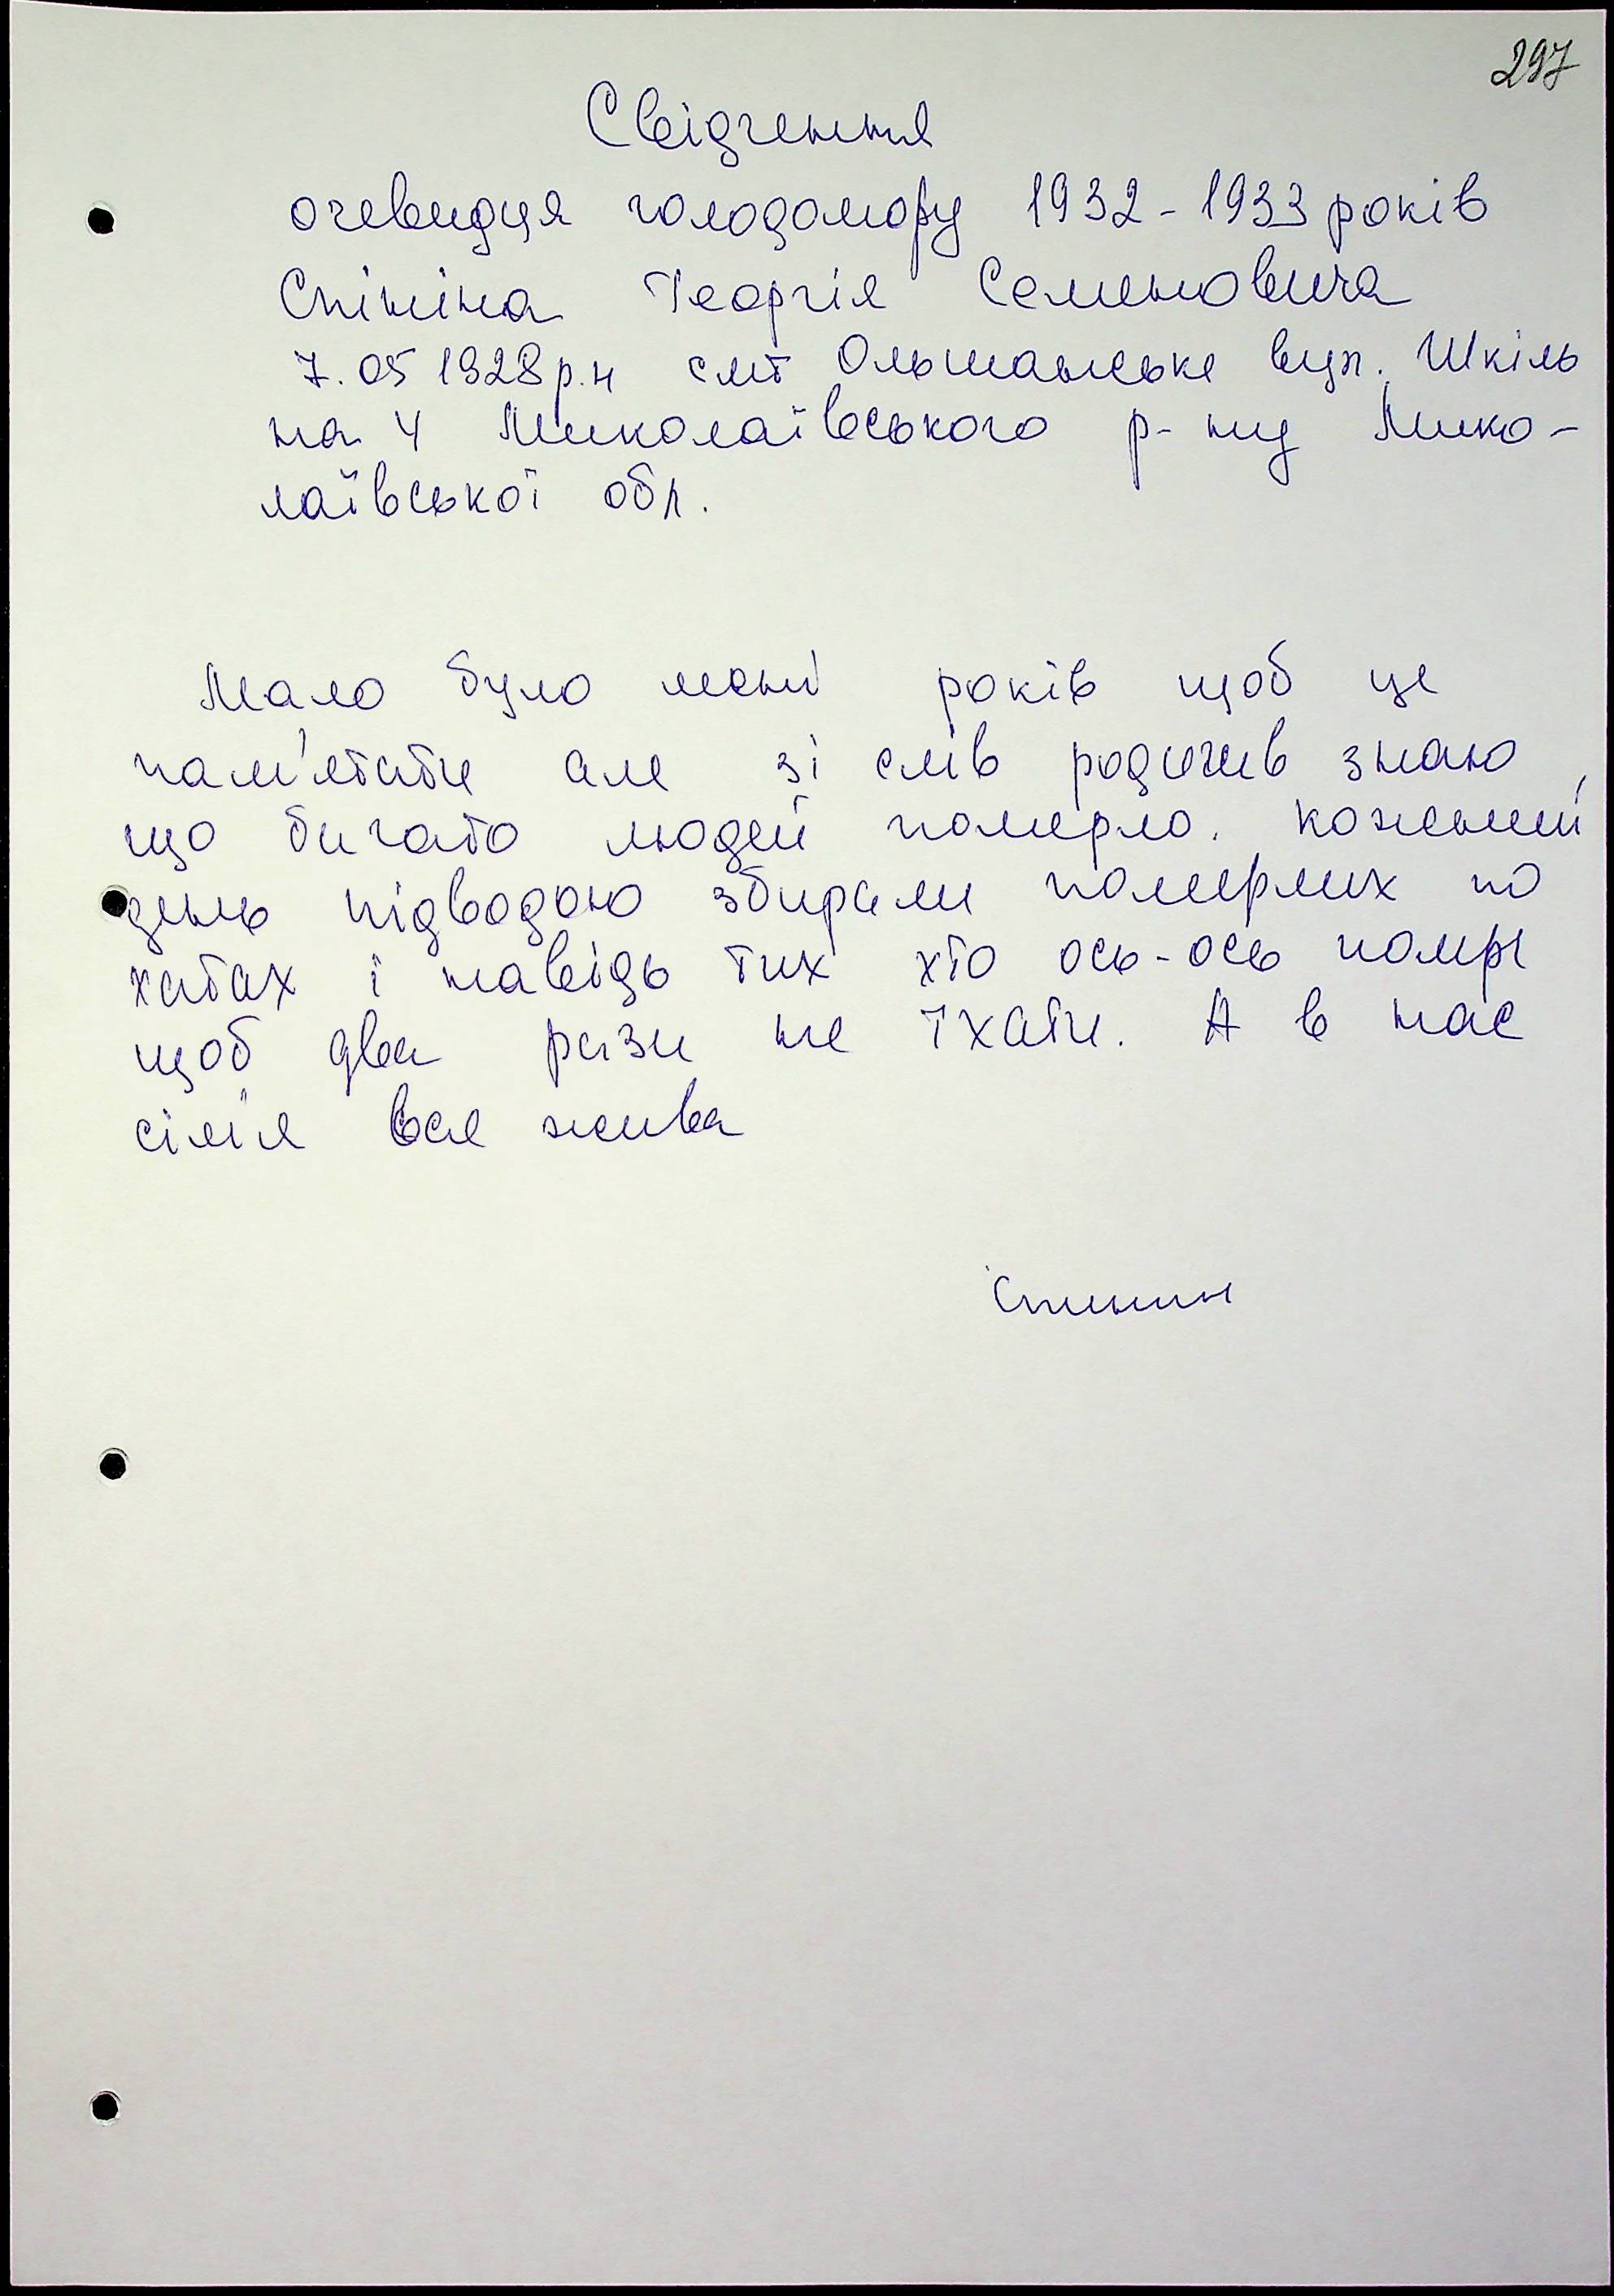 297
Свідчення
очевидця голодомору 1932-1933 років
Спініна Георгія Семеновича
7.05 1928р.н смт Ольшанське вул. Шкіль
на 4 Миколаївського р-ну Мико-
лаївської обл.
Мало було мені років щоб це
пам'ятати але зі слів родичів знаю,
що багато людей померло. Кожений
день підводою збирали померлих по
хатах і навідь тих хто ось-ось помре
щоб два рази не їхати. А в нас
сім'я вся жива
Спинин